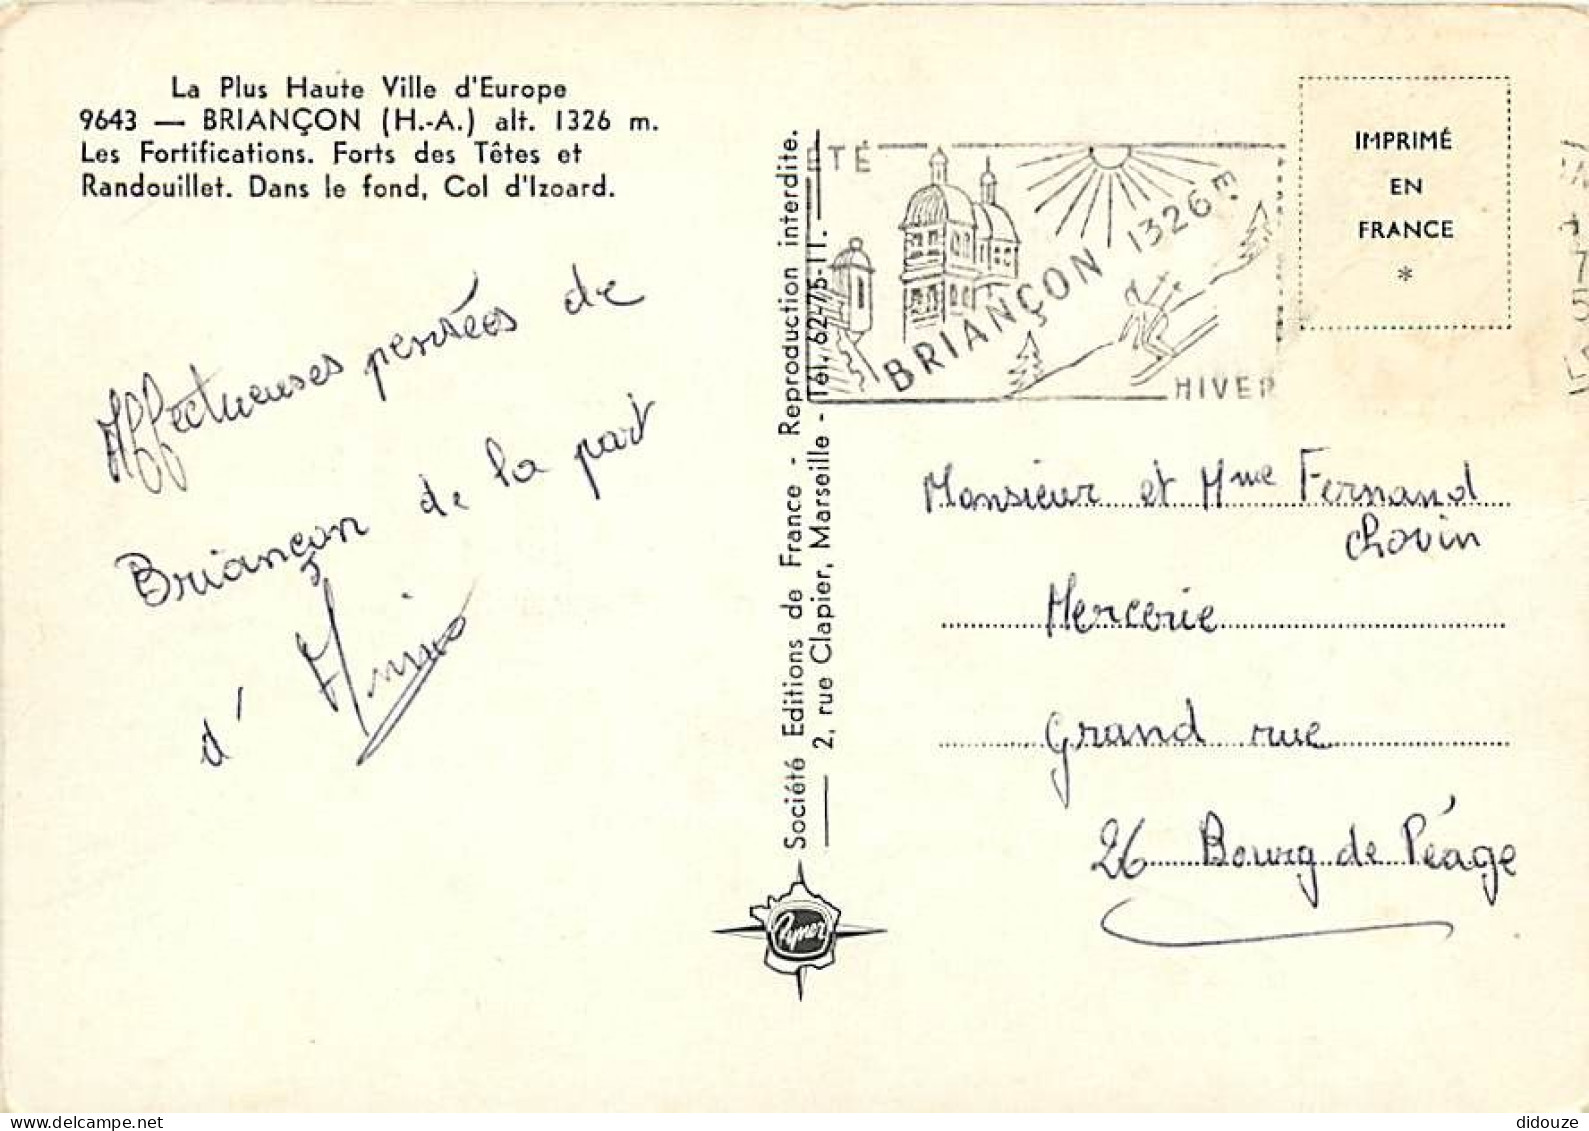 La Plus Haute Ville d'Europe
9643 — BRIANÇON (H.-A.) alt. 1326 m.
Les Fortifications. Forts des Têtes et
Randouillet. Dans le fond, Col d'Izoard.
Affectueuses pensées de
Briançon de la part
d'
Société Editions de France - Reproduction interdite.
2, rue Clapier, Marseille - Tél. 62-75-11.
ÉTÉ
BRIANÇON 1326 M.
HIVER
IMPRIMÉ
EN
FRANCE
*
Monsieur et Mme Fernand
Chovin
Mercerie
Grand rue
26 Bourg de Péage
delcampe.net
didouze